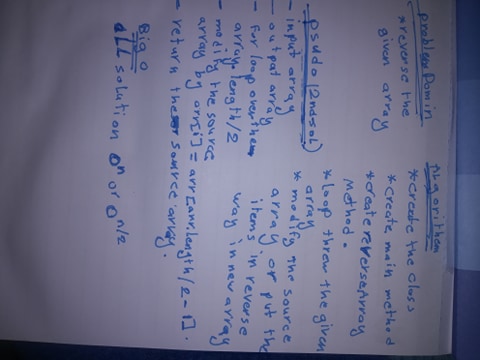 problem Domin
* reverse the
given array
Algorithem
* create the class
* create main method
* create reverseArray
Method.
* loop threw the given
array
* modify the source
array or put the
items in reverse
way in new array
psudo (2nd sol)
- input array
- output array
- for loop over them
array.length/2
- modify the source
array by arr[i] = arr[arr.length/2 - 1].
- return the source array.
Big O
all solution O^n or O^n/2